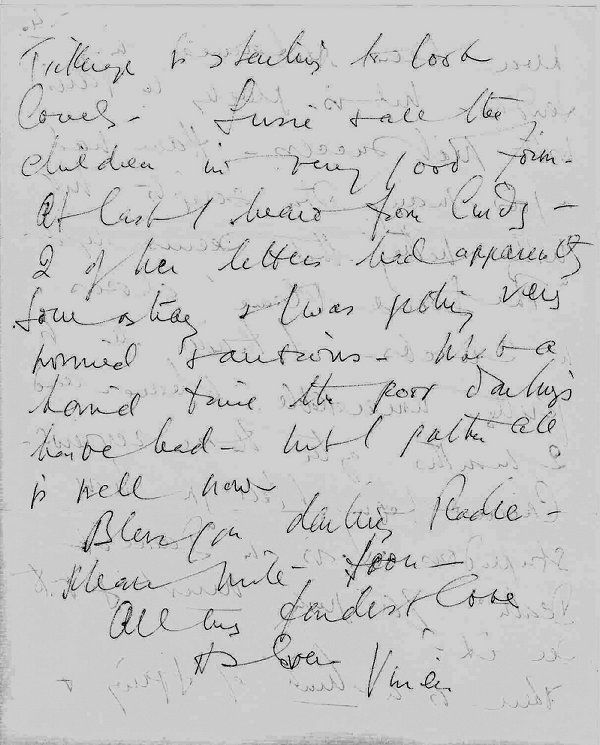 Tickerage is starting to look
lovely - Susie & all the
children in very good form -
At last I heard from Cindy -
2 of her letters had apparently
gone astray & I was getting very
worried & anxious - What a
horrid time the poor darlings
have had - but I gather all
is well now
Bless you darling Radie -
Please write - soon -
All my fondest love
as ever Vivien